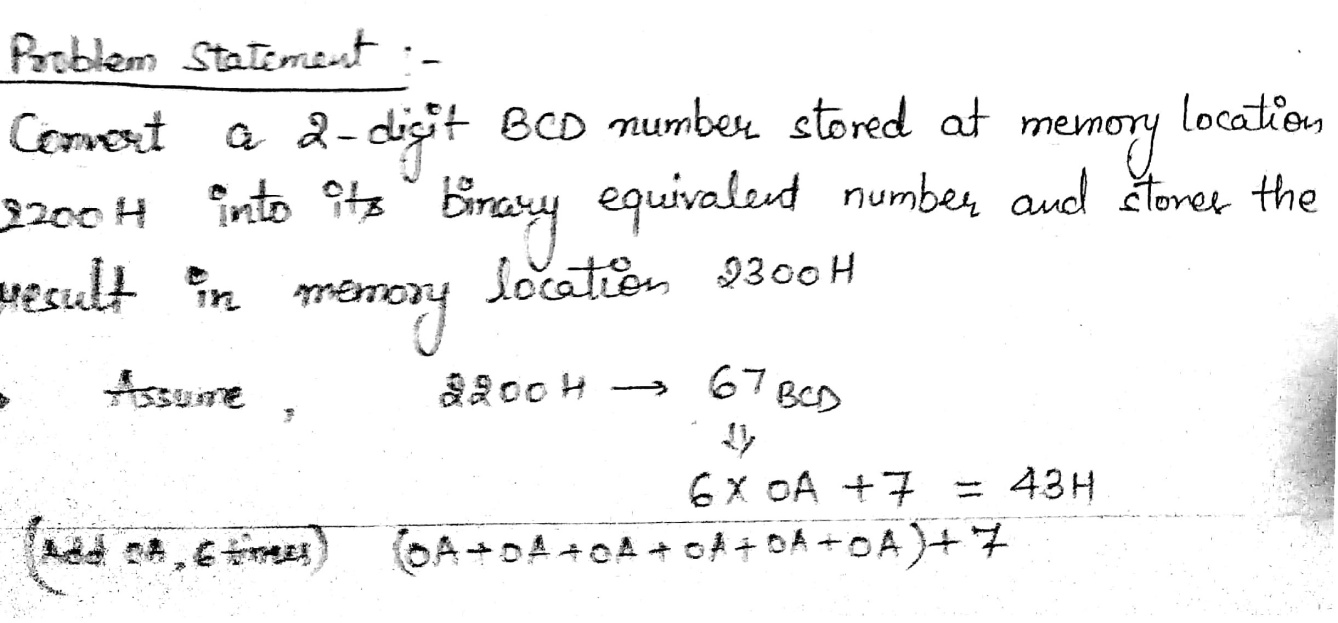 Problem Statement :-
Convert a 2-digit BCD number stored at memory location
2200H into its binary equivalent number and stores the
result in memory location 2300H
Assume, 2200H → 67 BCD
⇓
6X0A +7 = 43H
(Add 0A, 6 times) (0A+0A+0A+0A+0A+0A)+7